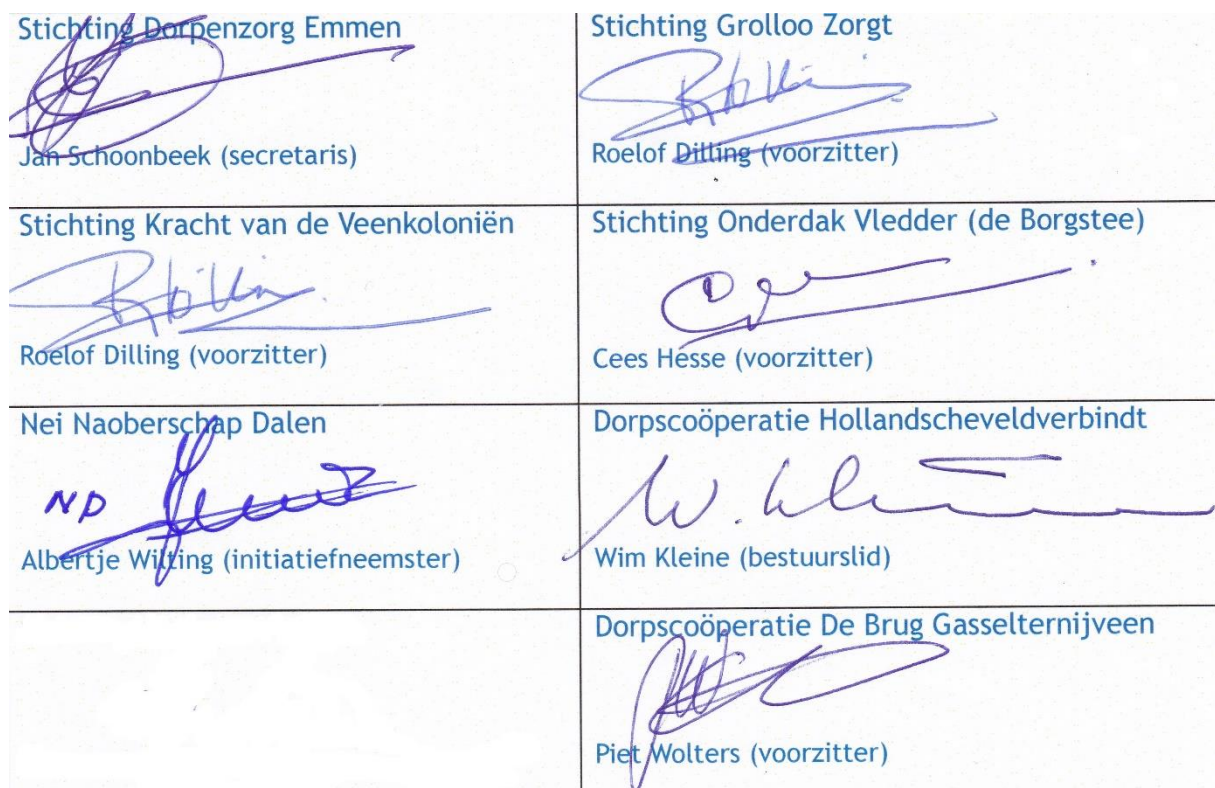 Stichting Dorpenzorg Emmen
Jan Schoonbeek (secretaris)
Stichting Grolloo Zorgt
Roelof Dilling (voorzitter)
Stichting Kracht van de Veenkoloniën
Roelof Dilling (voorzitter)
Stichting Onderdak Vledder (de Borgstee)
Cees Hesse (voorzitter)
Nei Naoberschap Dalen
NP
Albertje Wilting (initiatiefneemster)
Dorpscoöperatie Hollandscheveldverbindt
W. Kleine
Wim Kleine (bestuurslid)
Dorpscoöperatie De Brug Gasselternijveen
Piet Wolters (voorzitter)